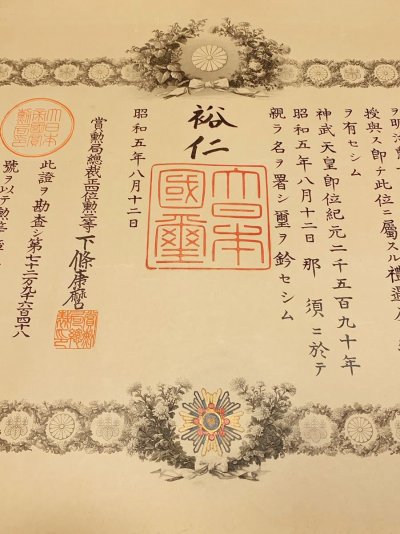 ヲ明治
授與ス即チ此位ニ屬スル禮遇及
ヲ有セシム
神武天皇即位紀元二千五百九十年
昭和五年八月十二日那須ニ於テ
親ラ名ヲ署シ璽ヲ鈐セシム
裕仁
大日本國璽
昭和五年八月十二日
賞勲局總裁正四位勲二等下條康麿
此證ヲ勘査シ第七十二万九千六百四十八
號ヲ以テ勲等